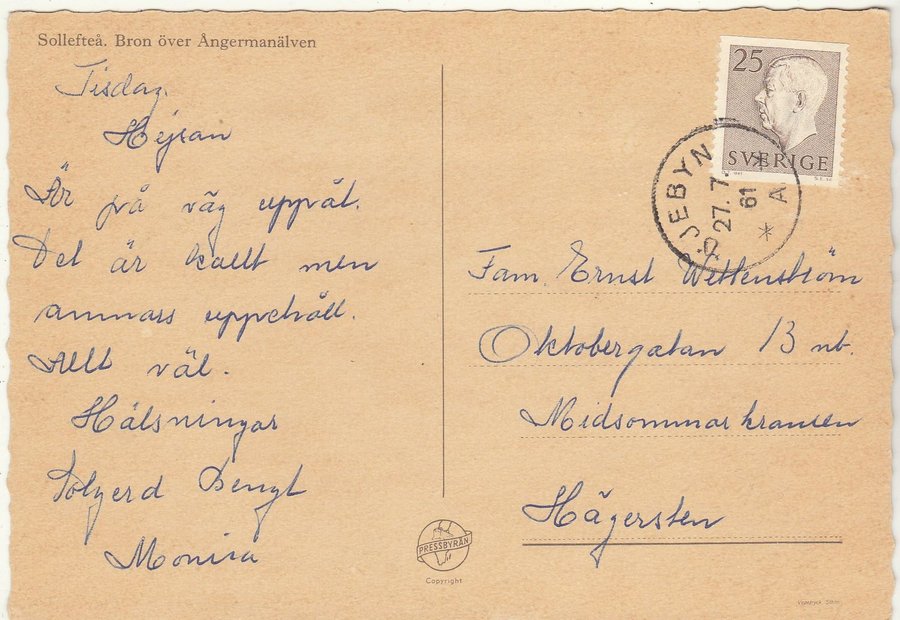 Sollefteå. Bron över Ångermanälven
Tisdag.
Hejsan
Är på väg uppåt.
Det är kallt men
annars uppehåll.
Allt väl.
Hälsningar
Solgerd Bengt
Monica
25
SVERIGE
ÖJEBYN
27. 7. 61
A
Fam. Ernst Wettenström
Oktobergatan 13 nb.
Midsommarkransen
Hägersten
PRESSBYRÅN
Copyright